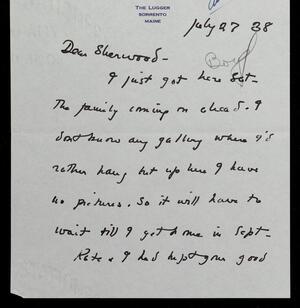 THE LUGGER
SORRENTO
MAINE
July 27 38
Boyd
Dear Sherwood -
I just got here Sat-
The family coming on ahead. I
don't know any gallery where I'd
rather hang but up here I have
no pictures. So it will have to
wait till I get home in Sept-
Kate & I had kept your good